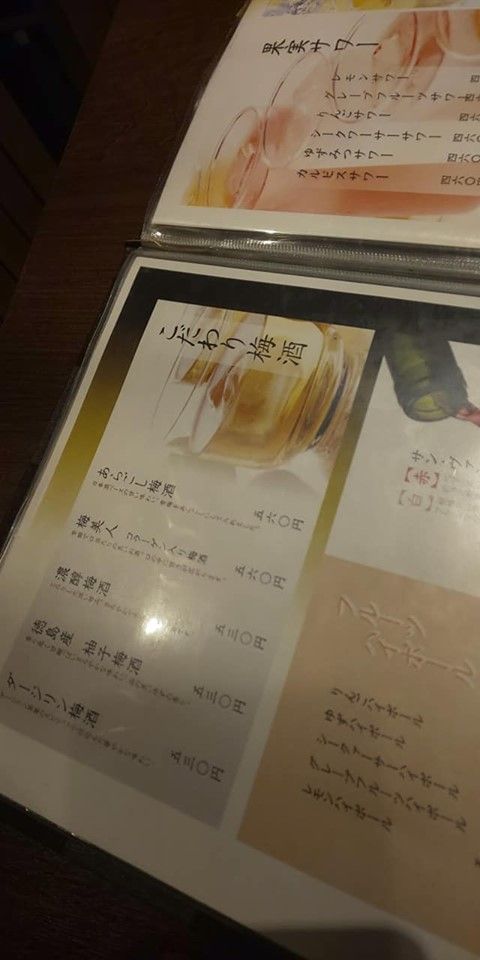 果実サワー
レモンサワー 四
グレープフルーツサワー 四
りんごサワー 四六
シークワーサーサワー 四六〇
ゆずみつサワー 四六〇
カルピスサワー 四六〇円
こだわり梅酒
あらごし梅酒 五六〇円
梅美人 コラーゲン入り梅酒 五六〇円
濃醇梅酒 五三〇円
徳島産 柚子梅酒 五三〇円
ダージリン梅酒 五三〇円
サン・ヴァ
【赤】
【白】
フルーツ
ハイボール
りんごハイボール
ゆずハイボール
シークァーサーハイボール
グレープフルーツハイボール
レモンハイボール